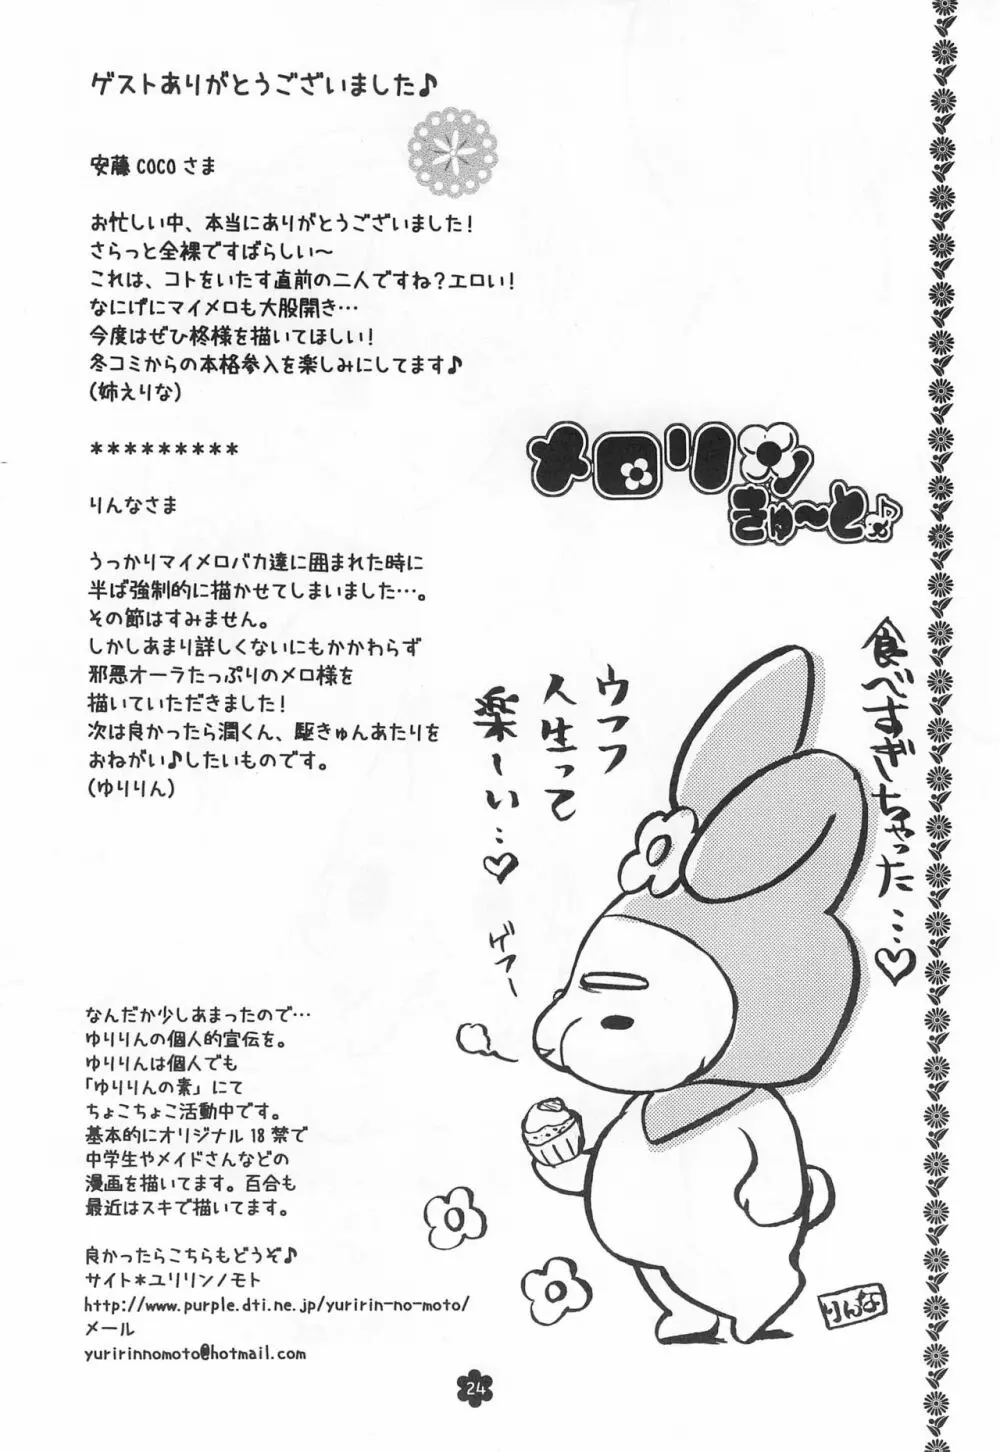 ゲストありがとうございました♪
安藤cocoさま
お忙しい中、本当にありがとうございました!
さらっと全裸ですばらしい〜
これは、コトをいたす直前の二人ですね?エロい!
なにげにマイメロも大股開き…
今度はぜひ柊様を描いてほしい!
冬コミからの本格参入を楽しみにしてます♪
(姉えりな)
*********
りんなさま
うっかりマイメロバカ達に囲まれた時に
半ば強制的に描かせてしまいました…。
その節はすみません。
しかしあまり詳しくないにもかかわらず
邪悪オーラたっぷりのメロ様を
描いていただきました!
次は良かったら潤くん、駆きゅんあたりを
おねがい♪したいものです。
(ゆりりん)
メロリン
きゅ〜と♪
食べすぎちゃった…♡
ウフフ
人生って
楽しい…♡
げふー
なんだか少しあまったので…
ゆりりんの個人的宣伝を。
ゆりりんは個人でも
「ゆりりんの素」にて
ちょこちょこ活動中です。
基本的にオリジナル18禁で
中学生やメイドさんなどの
漫画を描いてます。百合も
最近はスキで描いてます。
良かったらこちらもどうぞ♪
サイト*ユリリンノモト
http://www.purple.dti.ne.jp/yuririn-no-moto/
メール
yuririnnomoto@hotmail.com
りんな
24